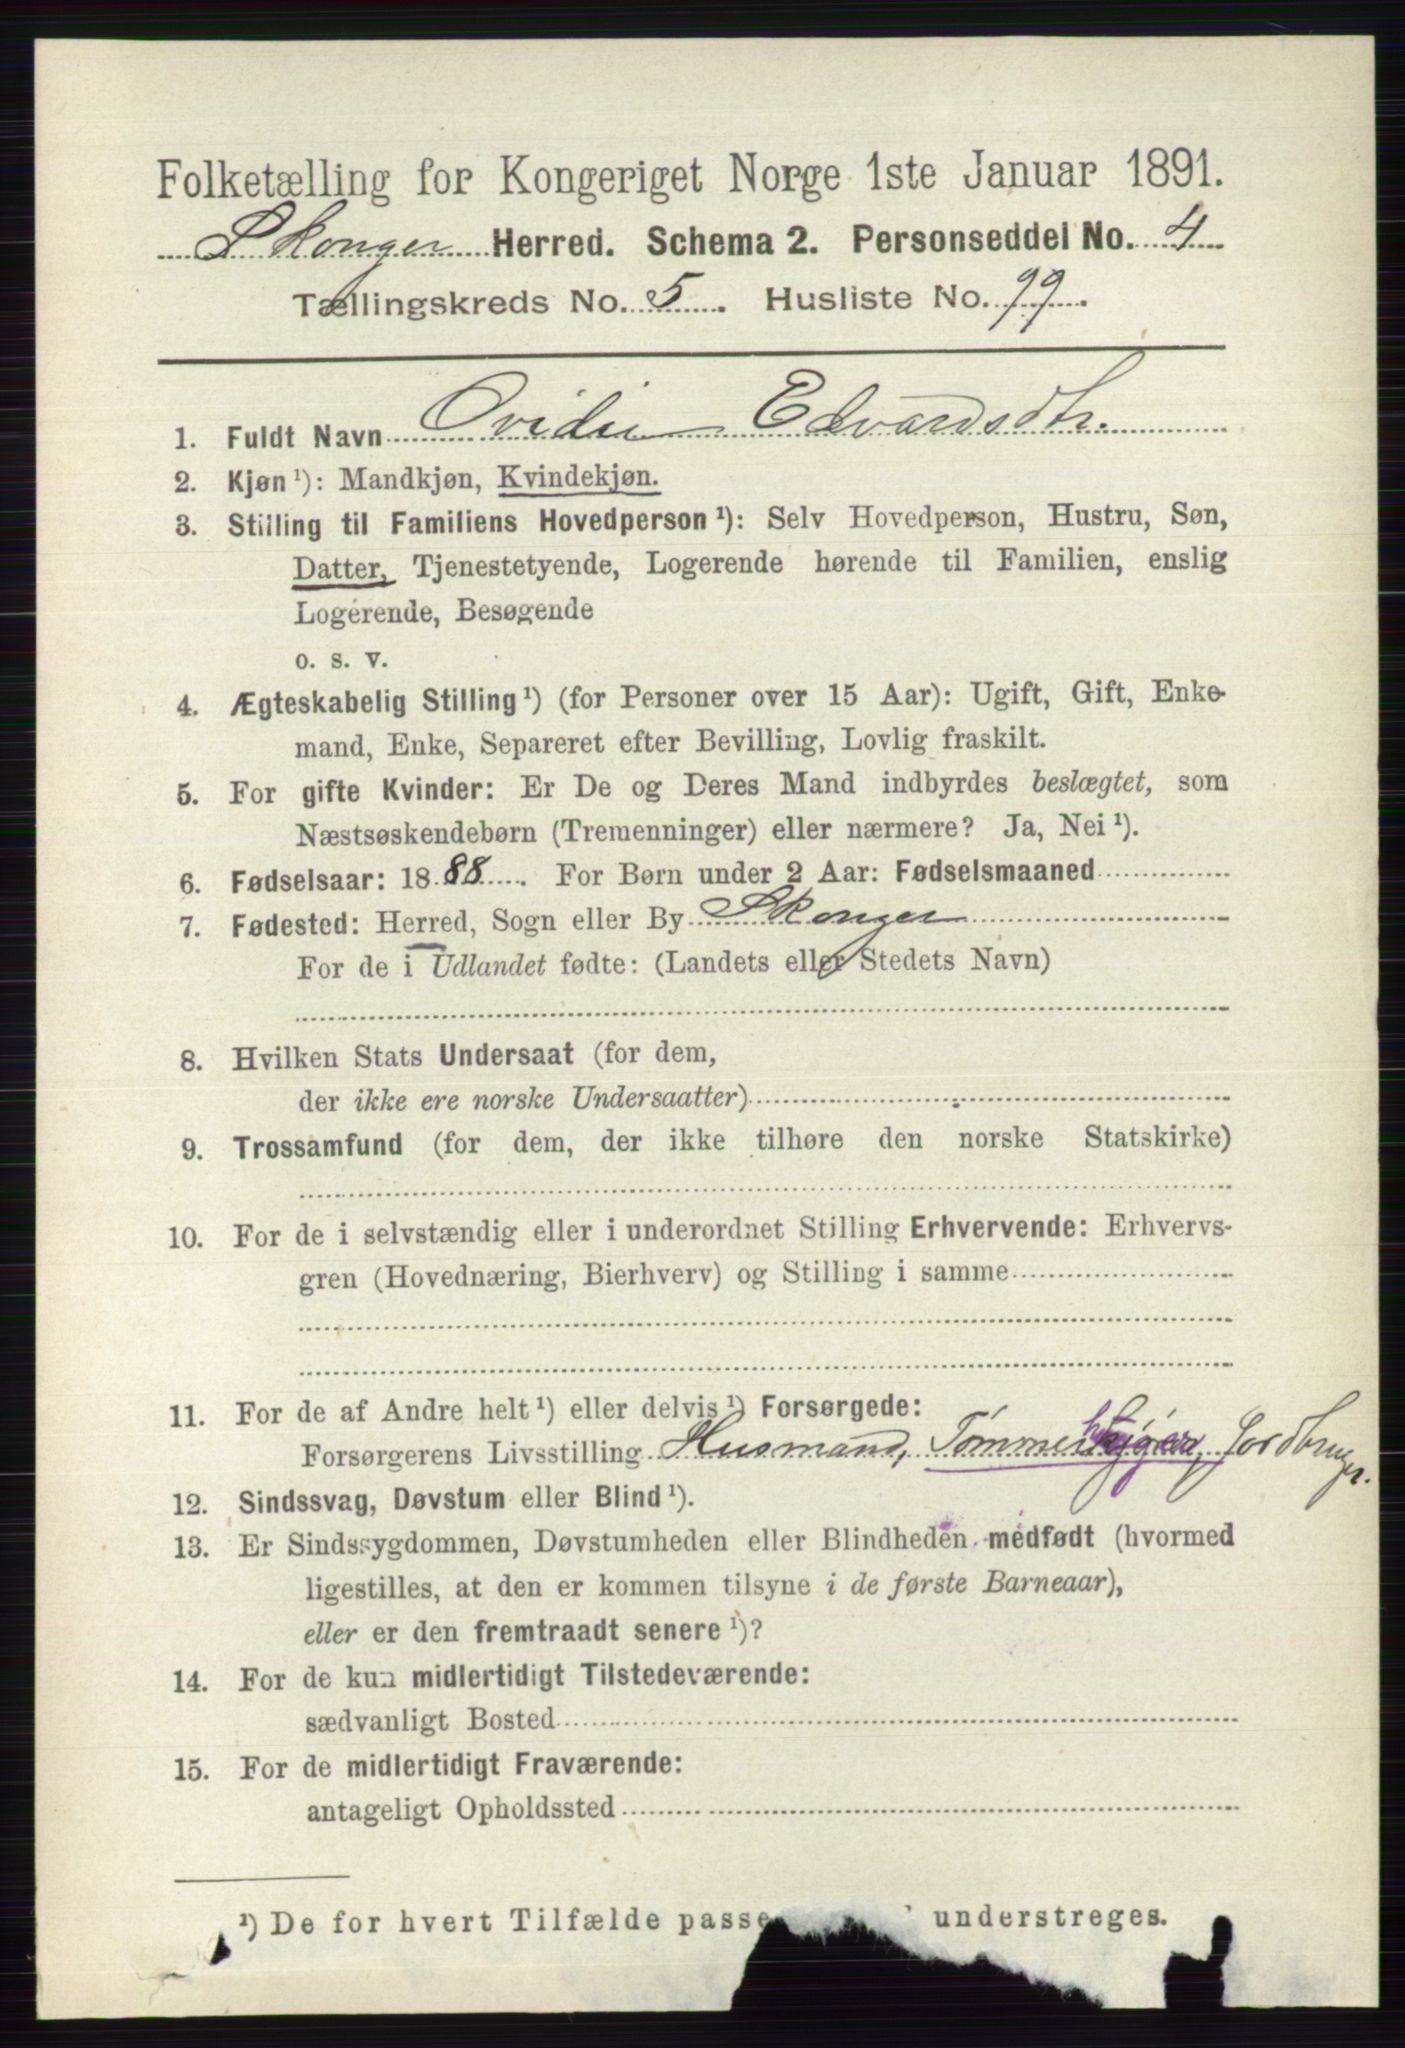 Folketælling for Kongeriget Norge 1ste Januar 1891.
Skoger Herred. Schema 2. Personseddel No. 4
Tællingskreds No. 5. Husliste No. 99.
1. Fuldt Navn Ovidie Edvardsdtr.
2. Kjøn ¹): Mandkjøn, Kvindekjøn.
3. Stilling til Familiens Hovedperson ¹): Selv Hovedperson, Hustru, Søn,
Datter, Tjenestetyende, Logerende hørende til Familien, enslig
Logerende, Besøgende
o. s. v.
4. Ægteskabelig Stilling ¹) (for Personer over 15 Aar): Ugift, Gift, Enke-
mand, Enke, Separeret efter Bevilling, Lovlig fraskilt.
5. For gifte Kvinder: Er De og Deres Mand indbyrdes beslægtet, som
Næstsøskendebørn (Tremenninger) eller nærmere? Ja, Nei ¹).
6. Fødselsaar: 1888. For Børn under 2 Aar: Fødselsmaaned
7. Fødested: Herred, Sogn eller By Skoger
For de i Udlandet fødte: (Landets eller Stedets Navn)
8. Hvilken Stats Undersaat (for dem,
der ikke ere norske Undersaatter)
9. Trossamfund (for dem, der ikke tilhøre den norske Statskirke)
10. For de i selvstændig eller i underordnet Stilling Erhvervende: Erhvervs-
gren (Hovednæring, Bierhverv) og Stilling i samme
11. For de af Andre helt ¹) eller delvis ¹) Forsørgede:
Forsørgerens Livsstilling Husmand, Tømmerkjører, Jordbruger.
12. Sindssvag, Døvstum eller Blind ¹).
13. Er Sindssygdommen, Døvstumheden eller Blindheden medfødt (hvormed
ligestilles, at den er kommen tilsyne i de første Barneaar),
eller er den fremtraadt senere ¹)?
14. For de kun midlertidigt Tilstedeværende:
sædvanligt Bosted
15. For de midlertidigt Fraværende:
antageligt Opholdssted
¹) De for hvert Tilfælde passe understreges.